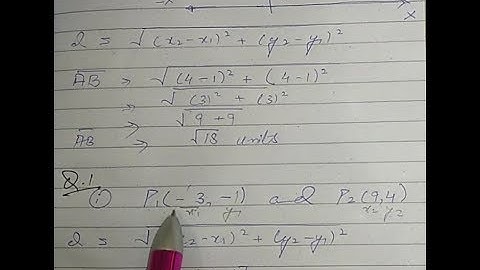 x
d = √(x₂-x₁)² + (y₂-y₁)²
AB ⇒ √(4-1)² + (4-1)²
⇒ √(3)² + (3)²
⇒ √9+9
AB ⇒ √18 units
Q.1
① P₁(-3, -1) and P₂(9,4)
x₁ y₁ x₂ y₂
d = √(x₂-x₁)² + (y₂-y₁)²